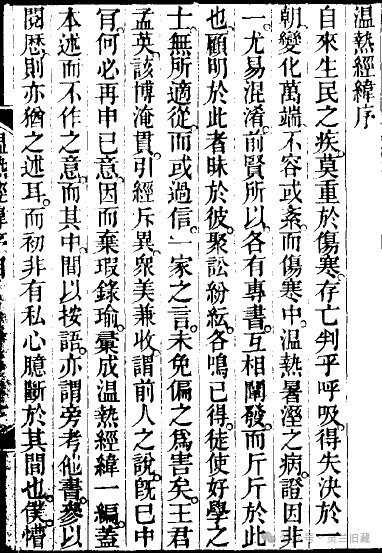 溫熱經緯序
自來生民之疾莫重於傷寒存亡判乎呼吸得失決於
朝變化萬端不容或紊而傷寒中溫熱暑溼之病證因非
一尤易混淆前賢所以各有專書互相闡發而斤斤於此
也顧明於此者昧於彼聚訟紛紜各鳴已得徒使好學之
士無所適從而或過信一家之言未免偏之爲害矣王君
孟英該博淹貫引經斥異衆美兼收謂前人之說旣已中
肯何必再申已意因而棄瑕錄瑜彙成溫熱經緯一編蓋
本述而不作之意而其中間以按語亦謂旁考他書參以
閱歷則亦猶之述耳而初非有私心臆斷於其間也僕懵
溫熱經緯序